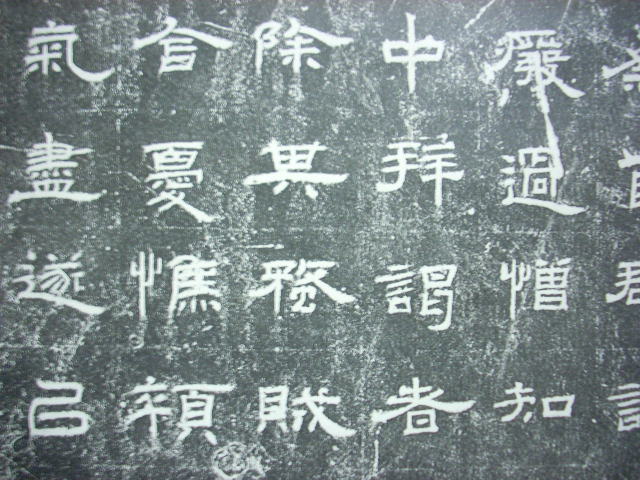 嚴過憎知
中拜謁者
除其蝥賊
含憂憔顇
氣盡遂己